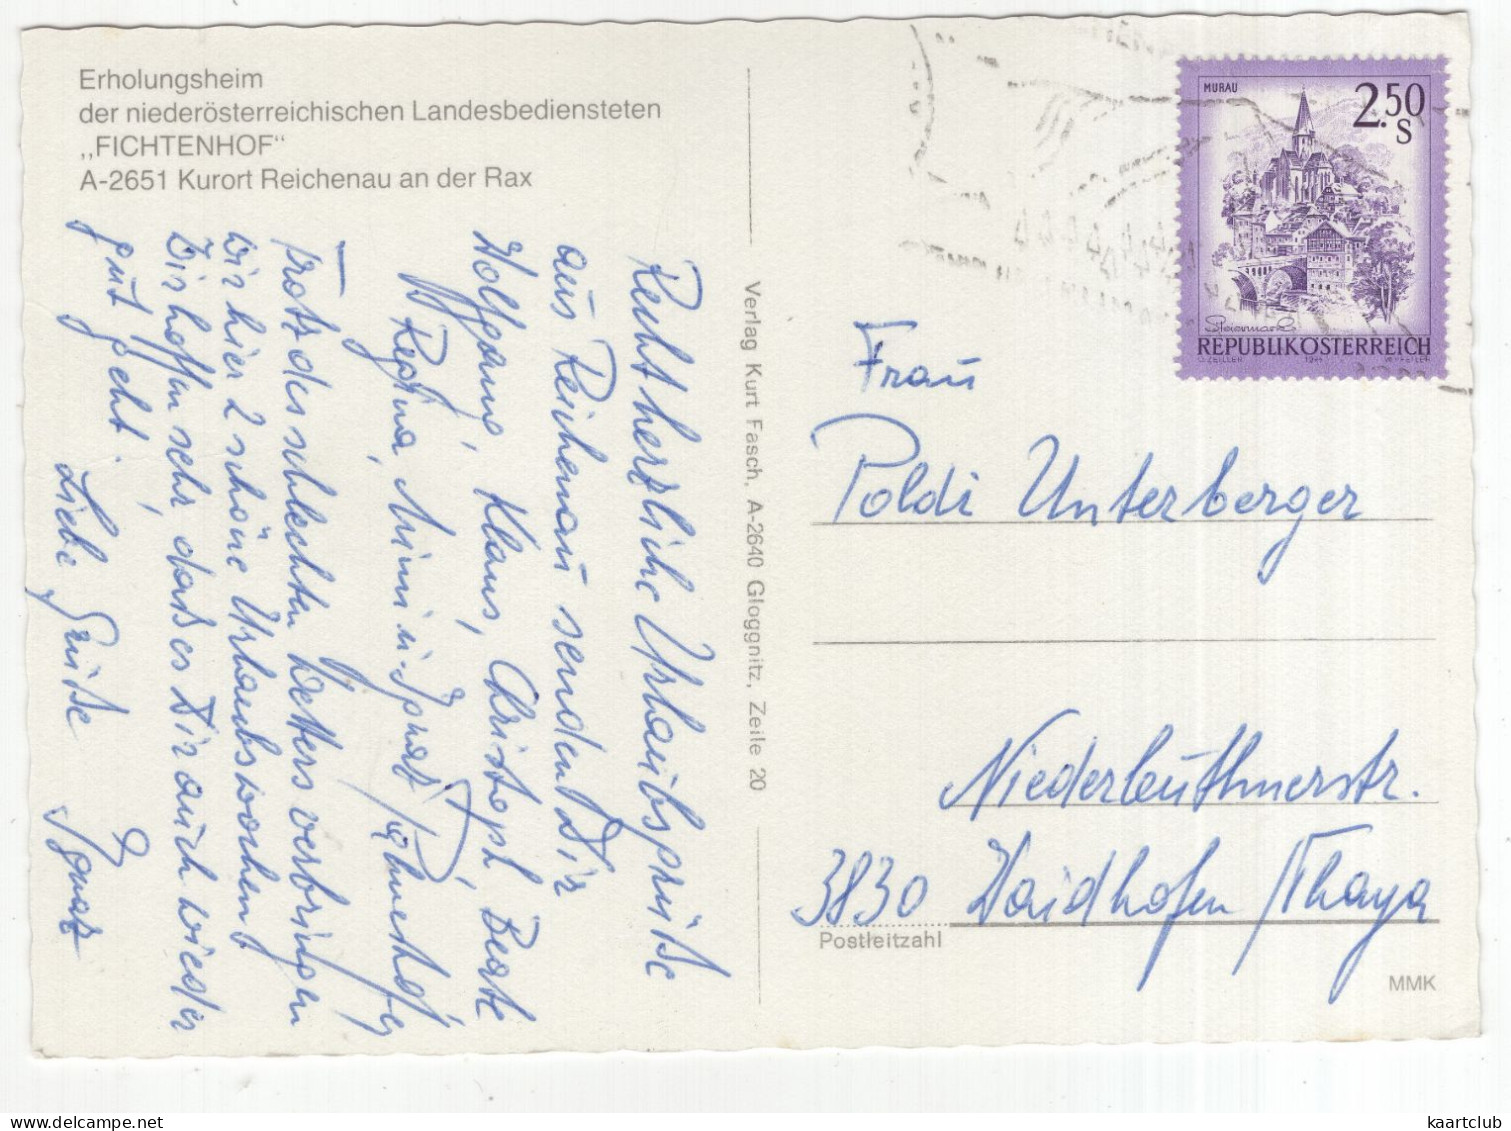 Erholungsheim
der niederösterreichischen Landesbediensteten
„FICHTENHOF"
A-2651 Kurort Reichenau an der Rax
Recht herzliche Urlaubsgrüße
aus Reichenau senden Dir
Wolfgang, Klaus, Christoph, Beate
Regina, Mimi u.
Trotz des schlechten Wetters verbringen
wir hier 2 schöne Urlaubswochen
Wir hoffen sehr, daß es Dir auch wieder
gut geht!
Liebe Grüße
Verlag Kurt Fasch, A-2640 Gloggnitz, Zeile 20
MURAU
2.50
S
Steiermark
REPUBLIK ÖSTERREICH
Frau
Poldi Unterberger
Niederleuthnerstr.
3830 Waidhofen/Thaya
Postleitzahl
MMK
kaartclub